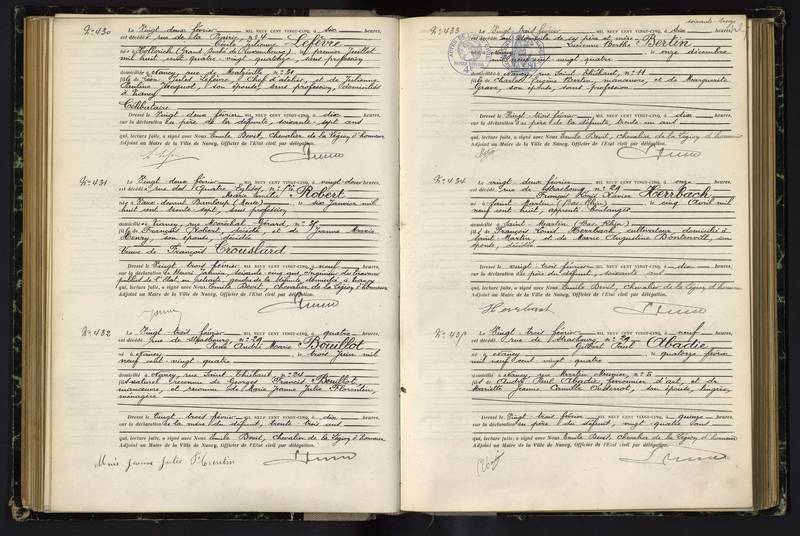 N° 430
Le Vingt deux février MIL NEUF CENT VINGT-CINQ, à dix heures,
est décédée rue de la Prairie n° 4
Lefèvre
née à Hollerich (Grand Duché de Luxembourg) le premier Juillet
mil huit cent quatre-vingt quatorze, sans profession
domiciliée à Nancy, rue de
fille de Jules Lefèvre, chef d'atelier, et de Julienne
Pauline Jacquot, son épouse, sans profession, domiciliés
à Nancy
Célibataire
Dressé le Vingt deux février MIL NEUF CENT VINGT-CINQ, à dix heures,
sur la déclaration du père de la défunte, soixante-sept ans
qui, lecture faite, a signé avec Nous Emile Bevit, Chevalier de la Légion d'honneur
Adjoint au Maire de la Ville de Nancy, Officier de l'Etat civil par délégation.
N° 431
Le Vingt deux février MIL NEUF CENT VINGT-CINQ, à vingt deux heures,
est décédée rue des Quatre Eglises, n°
Marie Emélie Robert
née à Vaux-devant-Damloup (Meuse) le dix Janvier mil
huit cent trente sept, sans profession
domiciliée à Nancy, rue Maréchal Gérard, n°
fille de François Robert, décédé, et de Jeanne Marie
Henry, son épouse, décédée
Veuve de François Trouslard
Dressé le Vingt trois février MIL NEUF CENT VINGT-CINQ, à neuf heures,
sur la déclaration de Henri soixante-cinq ans, ingénieur des travaux
publics de l'Etat en retraite, gendre de la défunte, domicilié à Nancy
qui, lecture faite, a signé avec Nous Emile Bevit, Chevalier de la Légion d'honneur
Adjoint au Maire de la Ville de Nancy, Officier de l'Etat civil par délégation.
N° 432
Le Vingt trois février MIL NEUF CENT VINGT-CINQ, à quatre heures,
est décédé rue de Strasbourg, n° 29
René André Marie Bouillot
né à Nancy le trois Juin mil
neuf cent vingt quatre
domicilié à Nancy, rue Saint Thiébaut, n° 24
fils naturel reconnu de Georges Francis Bouillot
manœuvre, et reconnu de Marie Jeanne Julie Florentin,
ménagère
Dressé le Vingt trois février MIL NEUF CENT VINGT-CINQ, à dix heures,
sur la déclaration de la mère du défunt, trente-trois ans
qui, lecture faite, a signé avec Nous Emile Bevit, Chevalier de la Légion d'honneur
Adjoint au Maire de la Ville de Nancy, Officier de l'Etat civil par délégation.
Marie Jeanne Julie Florentin
soixante treize
N° 433
Le Vingt trois février MIL NEUF CENT VINGT-CINQ, à six heures,
est décédée au domicile de ses père et mère
Lucienne Berthe Bertin
née à Nancy le onze décembre
mil neuf cent vingt quatre
domiciliée à Nancy, rue Saint Thiébaut, n° 11
fille de Charles Eugène Bertin, manœuvre, et de Marguerite
Grave, son épouse, sans profession
Dressé le Vingt-trois février MIL NEUF CENT VINGT-CINQ, à dix heures,
sur la déclaration du père de la défunte, trente un ans
qui, lecture faite, a signé avec Nous Emile Bevit, Chevalier de la Légion d'honneur
Adjoint au Maire de la Ville de Nancy, Officier de l'Etat civil par délégation.
N° 434
Le vingt deux février MIL NEUF CENT VINGT-CINQ, à onze heures,
est décédé rue de Strasbourg, n° 29
François Xavier Herrbach
né à Saint Martin (Bas Rhin) le cinq Avril mil
neuf cent huit, apprenti boulanger
domicilié à Saint-Martin (Bas Rhin)
fils de François Louis Herrbach, cultivateur, domicilié à
Saint-Martin, et de Marie Augustine son
épouse, décédée
Dressé le Vingt-trois février MIL NEUF CENT VINGT-CINQ, à dix heures,
sur la déclaration du père du défunt, soixante ans
qui, lecture faite, a signé avec Nous Emile Bevit, Chevalier de la Légion d'honneur
Adjoint au Maire de la Ville de Nancy, Officier de l'Etat civil par délégation.
Herrbach
N° 435
Le Vingt-trois février MIL NEUF CENT VINGT-CINQ, à neuf heures,
est décédé rue de Strasbourg, n° 29
Gilbert Paul Abadie
né à Nancy le quatorze février
mil neuf cent vingt-quatre
domicilié à Nancy, rue n° 5
fils de André Paul Abadie, ferronnier d'art, et de
Mariette Jeanne Camille son épouse, lingère
Dressé le Vingt-trois février MIL NEUF CENT VINGT-CINQ, à quinze heures,
sur la déclaration du père du défunt, vingt-quatre ans
qui, lecture faite, a signé avec Nous Emile Bevit, Chevalier de la Légion d'honneur
Adjoint au Maire de la Ville de Nancy, Officier de l'Etat civil par délégation.